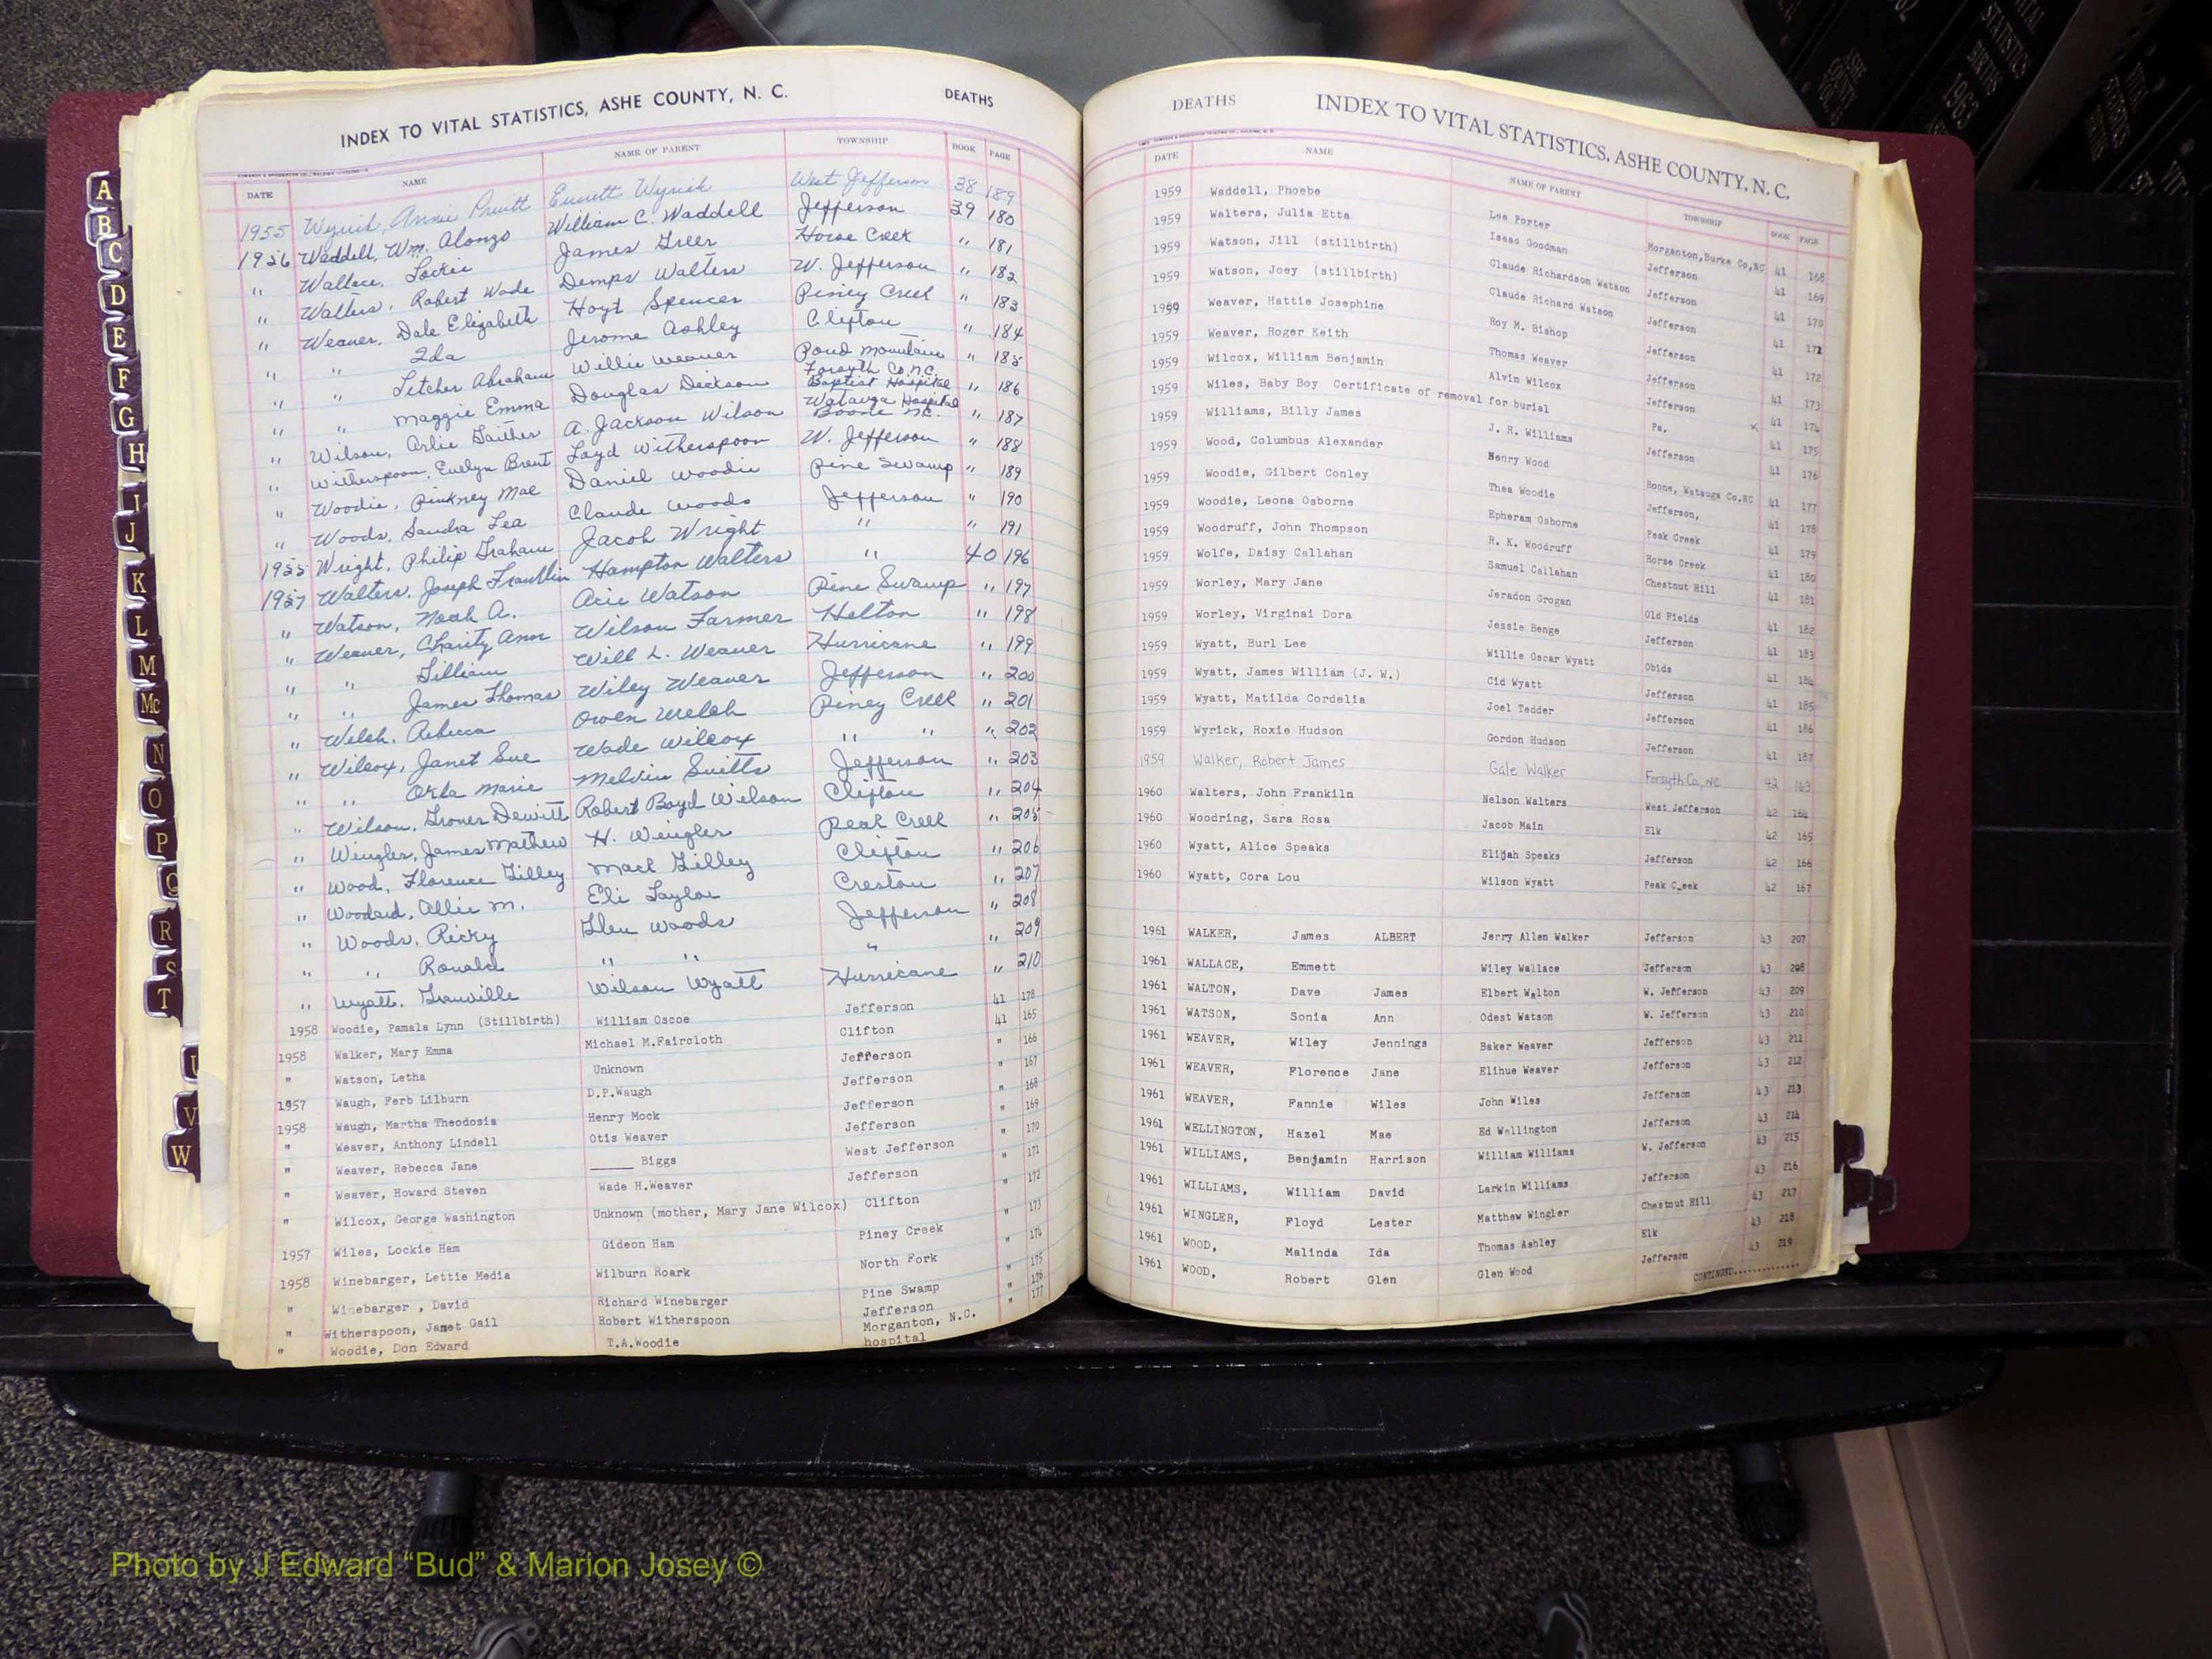 INDEX TO VITAL STATISTICS, ASHE COUNTY, N. C. DEATHS
DATE NAME NAME OF PARENT TOWNSHIP BOOK PAGE
1955 Wyrick, Annie Pruitt Everett Wyrick West Jefferson 38 189
1956 Waddell, Wm. Alonzo William C. Waddell Jefferson 39 180
" Wallace, Lockie James Greer Horse Creek " 181
" Walters, Robert Wade Demps Walters W. Jefferson " 182
" Weaver, Dale Elizabeth Hoyt Spencer Piney Creek " 183
" " Ida Jerome Ashley Clifton " 184
" " Letcher Abraham Willie Weaver Pond Mountain " 185
" " Maggie Emma Douglas Dickson Forsyth Co. N.C. Baptist Hospital " 186
" Wilson, Arlie Gaither A. Jackson Wilson Watauga Hospital Boone N.C. " 187
" Witherspoon, Evelyn Brent Loyd Witherspoon W. Jefferson " 188
" Woodie, Pinkney Mae Daniel Woodie Pine Swamp " 189
" Woods, Sandra Lea Claude Woods Jefferson " 190
1955 Wright, Philip Graham Jacob Wright " " 191
1957 Walters, Joseph Franklin Hampton Walters " 40 196
" Watson, Noah A. Acie Watson Pine Swamp " 197
" Weaver, Charity Ann Wilson Farmer Helton " 198
" " Lilliam Will L. Weaver Hurricane " 199
" " James Thomas Wiley Weaver Jefferson " 200
" Welch, Rebecca Owen Welch Piney Creek " 201
" Wilcox, Janet Sue Wade Wilcox " " " 202
" " Orla Marie Melvin Suitts Jefferson " 203
" Wilson, Groner Dewitt Robert Boyd Wilson Clifton " 204
" Wingler, James Mathew H. Wingler Peak Creek " 205
" Wood, Florence Lilley Mack Lilley Clifton " 206
" Woodard, Allie M. Eli Taylor Creston " 207
" Woods, Ricky Glen Woods Jefferson " 208
" " Ronald " " " " 209
" Wyatt, Granville Wilson Wyatt Hurricane " 210
1958 Woodie, Pamala Lynn (Stillbirth) William Oscoe Jefferson 41 178
1958 Walker, Mary Emma Michael M.Faircloth Clifton 41 165
" Watson, Letha Unknown Jefferson " 166
1957 Waugh, Ferb Lilburn D.P.Waugh Jefferson " 167
1958 Waugh, Martha Theodosia Henry Mock Jefferson " 168
" Weaver, Anthony Lindell Otis Weaver Jefferson " 169
" Weaver, Rebecca Jane ______ Biggs West Jefferson " 170
" Weaver, Howard Steven Wade H.Weaver Jefferson " 171
" Wilcox, George Washington Unknown (mother, Mary Jane Wilcox) Clifton " 172
1957 Wiles, Lockie Ham Gideon Ham Piney Creek " 173
1958 Winebarger, Lettie Media Wilburn Roark North Fork " 174
" Winebarger , David Richard Winebarger Pine Swamp " 175
" Witherspoon, Janet Gail Robert Witherspoon Jefferson " 176
" Woodie, Don Edward T.A.Woodie Morganton, N.C. hospital " 177
DEATHS INDEX TO VITAL STATISTICS, ASHE COUNTY, N. C.
DATE NAME NAME OF PARENT TOWNSHIP BOOK PAGE
1959 Waddell, Phoebe Lee Porter Morganton,Burke Co,NC 41 168
1959 Walters, Julia Etta Isaac Goodman Jefferson 41 169
1959 Watson, Jill (stillbirth) Claude Richardson Watson Jefferson 41 170
1959 Watson, Joey (stillbirth) Claude Richard Watson Jefferson 41 171
1959 Weaver, Hattie Josephine Roy M. Bishop Jefferson 41 172
1959 Weaver, Roger Keith Thomas Weaver Jefferson 41 173
1959 Wilcox, William Benjamin Alvin Wilcox Jefferson 41 174
1959 Wiles, Baby Boy Certificate of removal for burial Pa. x 41 175
1959 Williams, Billy James J. R. Williams Jefferson 41 176
1959 Wood, Columbus Alexander Henry Wood Boone, Watauga Co.NC 41 177
1959 Woodie, Gilbert Conley Thea Woodie Jefferson, 41 178
1959 Woodie, Leona Osborne Epheram Osborne Peak Creek 41 179
1959 Woodruff, John Thompson R. K. Woodruff Horse Creek 41 180
1959 Wolfe, Daisy Callahan Samuel Callahan Chestnut Hill 41 181
1959 Worley, Mary Jane Jeradon Grogan Old Fields 41 182
1959 Worley, Virginai Dora Jessie Benge Jefferson 41 183
1959 Wyatt, Burl Lee Willie Oscar Wyatt Obids 41 184
1959 Wyatt, James William (J. W.) Cid Wyatt Jefferson 41 185
1959 Wyatt, Matilda Cordelia Joel Tedder Jefferson 41 186
1959 Wyrick, Roxie Hudson Gordon Hudson Jefferson 41 187
1959 Walker, Robert James Gale Walker Forsyth Co, NC 42 163
1960 Walters, John Frankiln Nelson Walters West Jefferson 42 164
1960 Woodring, Sara Rosa Jacob Main Elk 42 165
1960 Wyatt, Alice Speaks Elijah Speaks Jefferson 42 166
1960 Wyatt, Cora Lou Wilson Wyatt Peak C_eek 42 167
1961 WALKER, James ALBERT Jerry Allen Walker Jefferson 43 207
1961 WALLACE, Emmett Wiley Wallace Jefferson 43 208
1961 WALTON, Dave James Elbert Walton W. Jefferson 43 209
1961 WATSON, Sonia Ann Odest Watson W. Jefferson 43 210
1961 WEAVER, Wiley Jennings Baker Weaver Jefferson 43 211
1961 WEAVER, Florence Jane Elihue Weaver Jefferson 43 212
1961 WEAVER, Fannie Wiles John Wiles Jefferson 43 213
1961 WELLINGTON, Hazel Mae Ed Wellington Jefferson 43 214
1961 WILLIAMS, Benjamin Harrison William Williams W. Jefferson 43 215
1961 WILLIAMS, William David Larkin Williams Jefferson 43 216
1961 WINGLER, Floyd Lester Matthew Wingler Chestnut Hill 43 217
1961 WOOD, Malinda Ida Thomas Ashley Elk 43 218
1961 WOOD, Robert Glen Glen Wood Jefferson 43 219
CONTINUED..............
A
B
C
D
E
F
G
H
I
J
K
L
M
Mc
N
O
P
Q
R
S
T
U
V
W
ASHE
VITAL STATISTICS BIRTHS 1963
Photo by J Edward “Bud” & Marion Josey ©